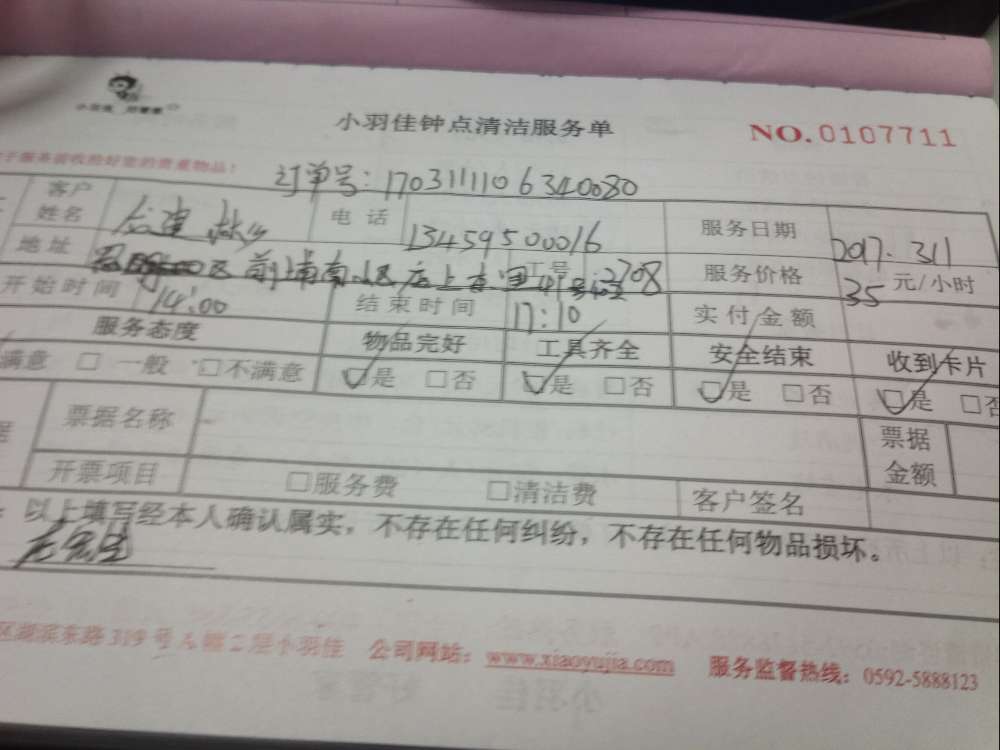 小羽佳钟点清洁服务单
NO.0107711
服务前收拾好您的贵重物品!
订单号:1703111106340080
客户姓名 电话 13459500016 服务日期 2017.3.11
地址 服务价格 35 元/小时
开始时间 14:00 结束时间 17:10 实付金额
服务态度 物品完好 工具齐全 安全结束 收到卡片
满意 □ 一般 □不满意 □是 □否 □是 □否 □是 □否 □是 □否
票据名称 票据金额
开票项目 □服务费 □清洁费 客户签名
以上填写经本人确认属实,不存在任何纠纷,不存在任何物品损坏。
区湖滨东路319号A幢二层小羽佳 公司网站:www.xiaoyujia.com 服务监督热线:0592-5888123